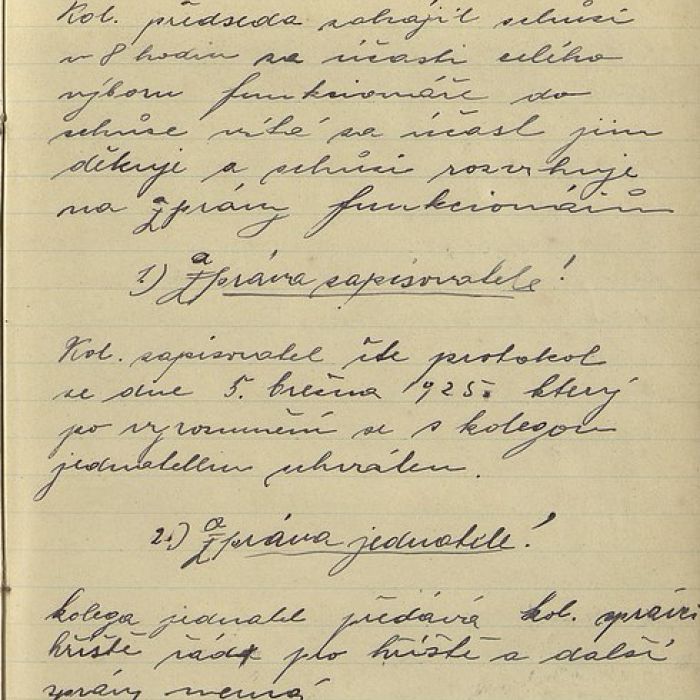 Kol. předseda zahájil schůsi
v 8 hodin za účasti celého
výboru funkcionáře do
schůse vítá za účast jim
děkuje a schůsi rozvrhuje
na zprávy funkcionářům
1.) Zpráva zapisovatele!
Kol. zapisovatel čte protokol
ze dne 5. března 1925. který
po vyrosumění se s kolegou
jednatellem uhválen.
2.) Zpráva jednatele!
kolega jednatel předává kol. správci
hřiště řád pro hřiště a další
zprávy nemá